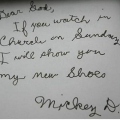 Dear God,
If you watch in
Church on Sunday
I will show you
my new Shoes
Mickey D.